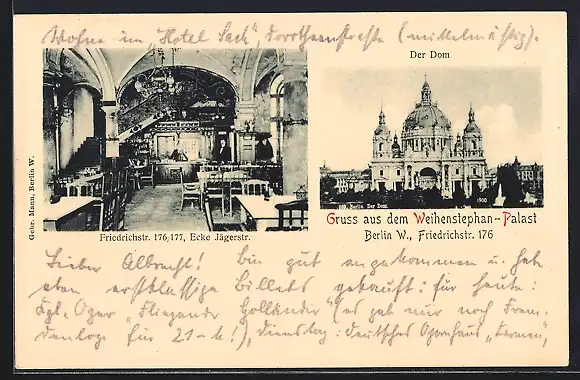 Wohne im "Hotel Sack" Dorotheenstraße (mittelmäßig).
Der Dom
Gebr. Mann, Berlin W.
Berlin. Der Dom.
1900
Friedrichstr. 176/177, Ecke Jägerstr.
Gruss aus dem Weihenstephan-Palast
Berlin W., Friedrichstr. 176
Lieber Albrecht! Bin gut angekommen u. hab
eben erstklassige Billets gekauft: für heute:
Kgl. Oper "Fliegender Holländer" (es gab nur noch Frem-
denloge für 21 M!), Dienstag: Deutsches Opernhaus "Carmen",